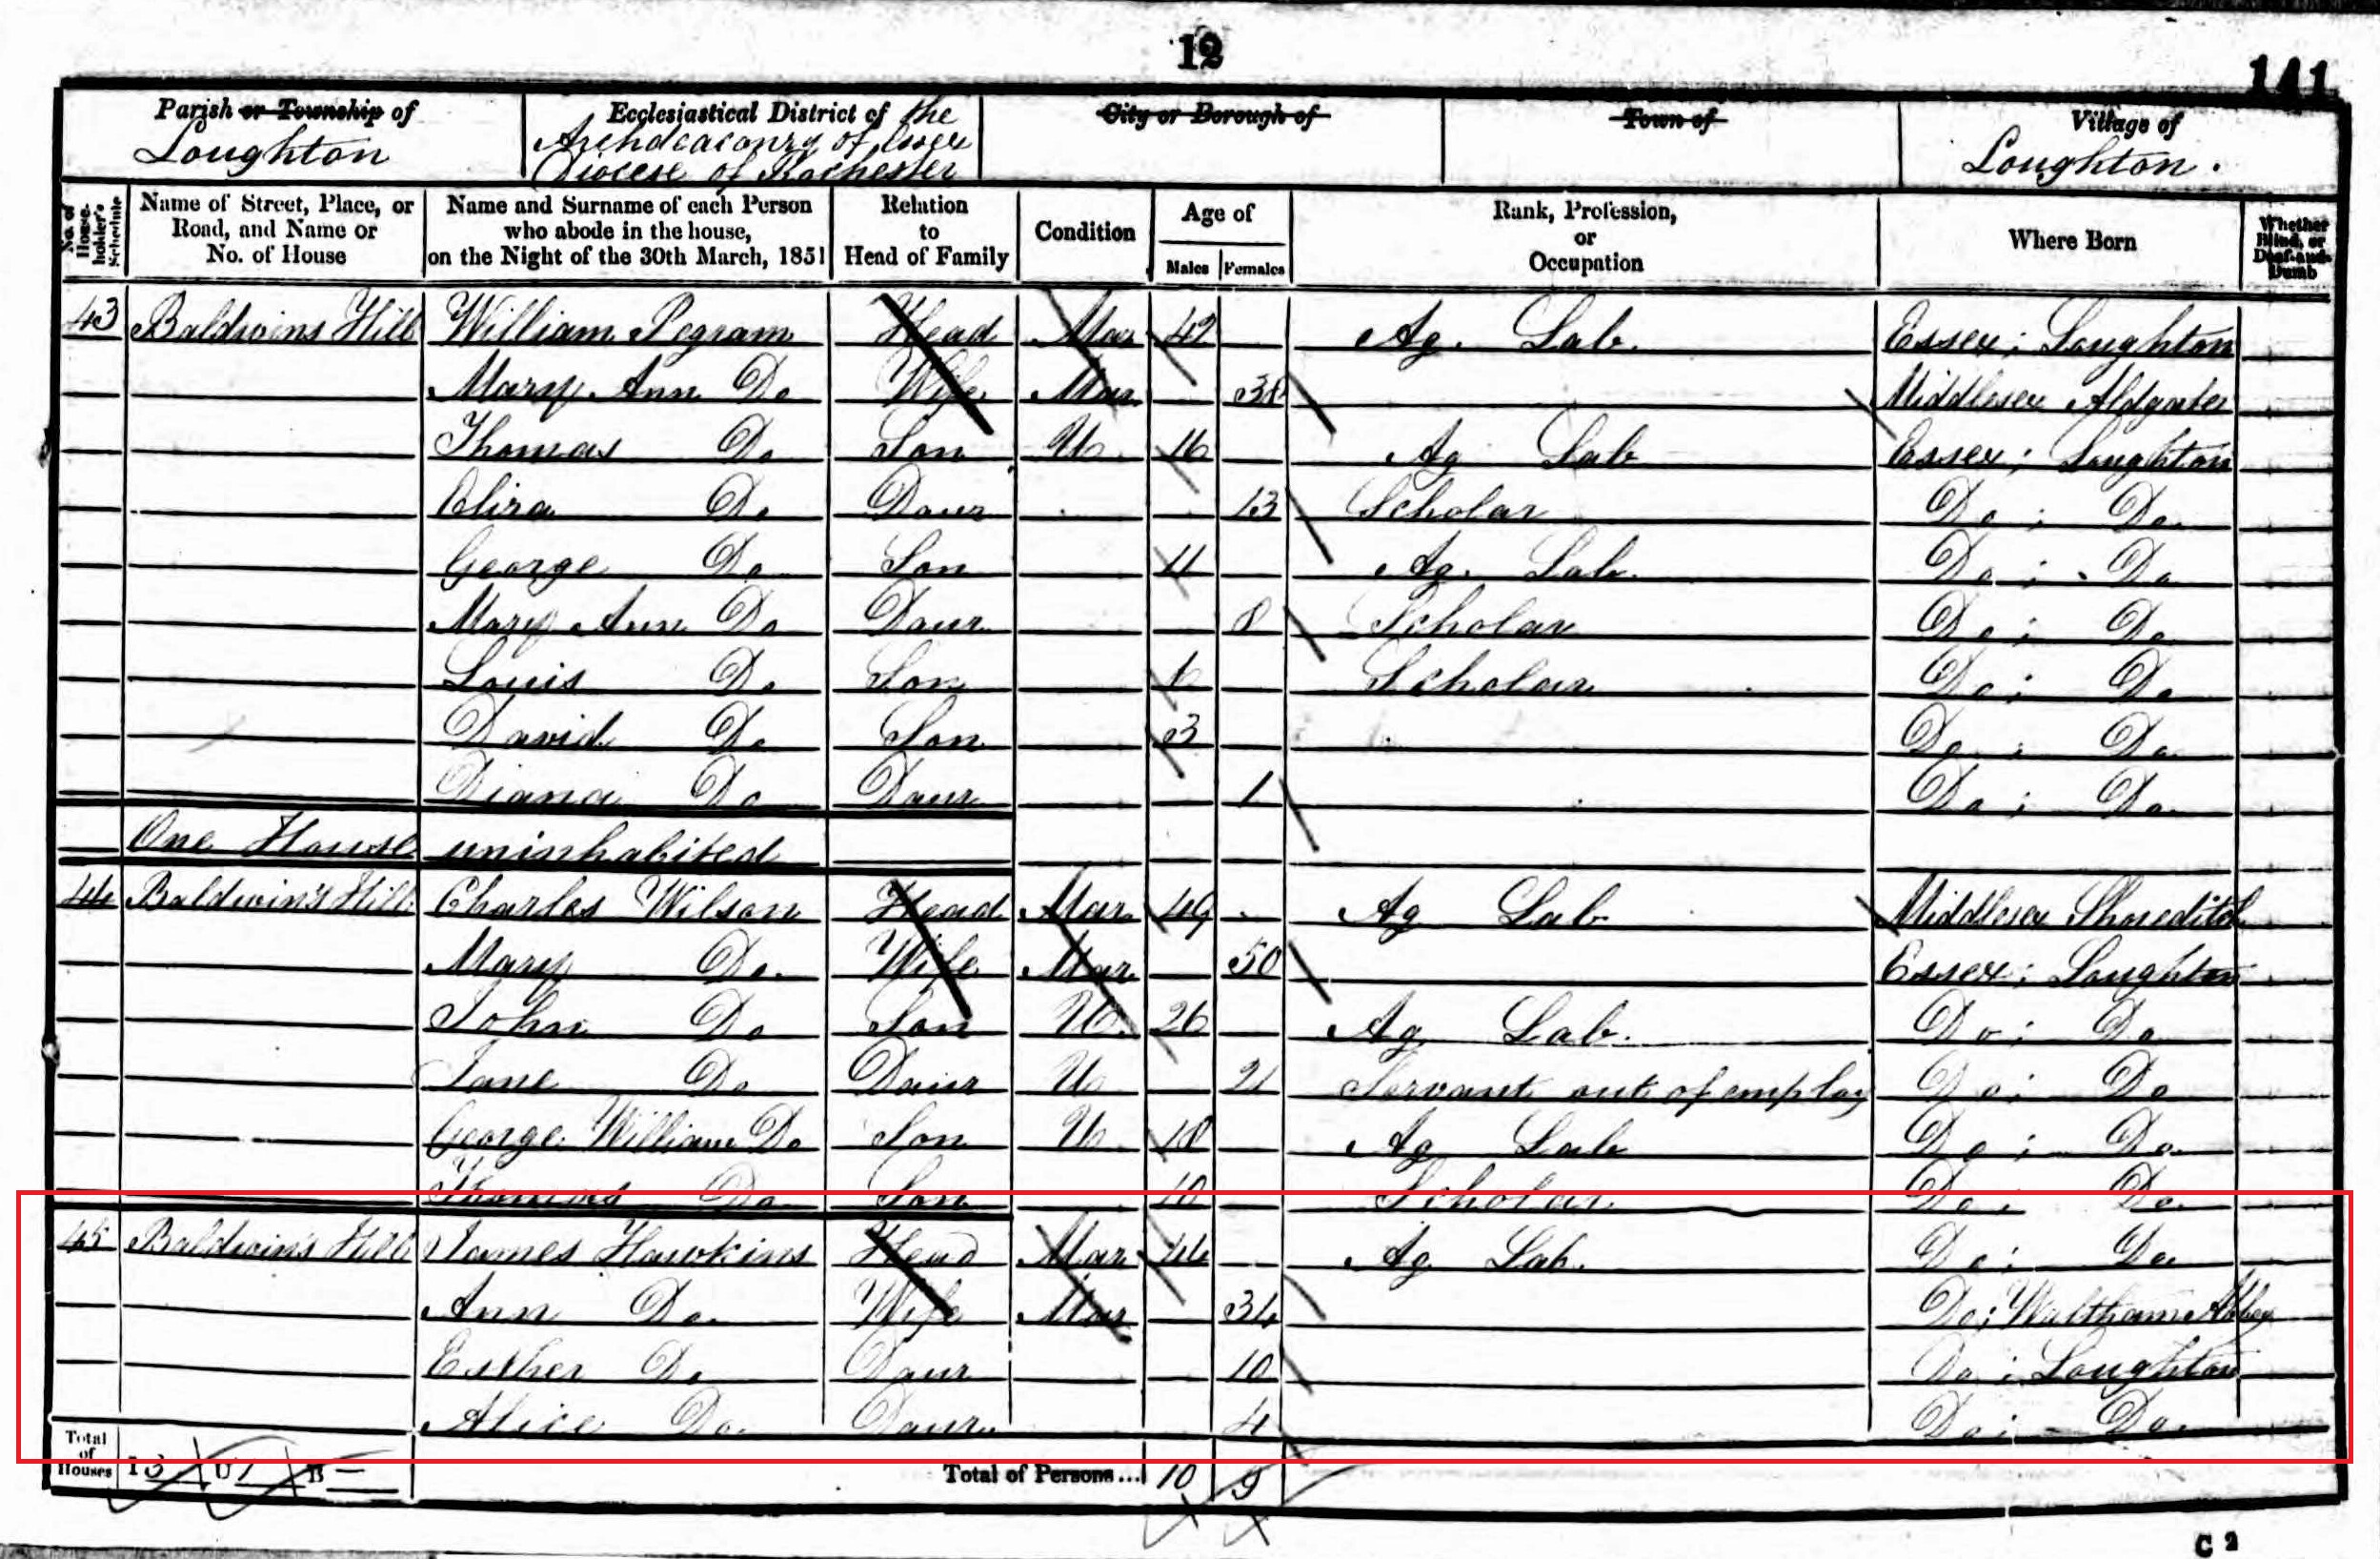 12
141
Parish or Township of
Loughton
Ecclesiastical District of the
Archdeaconry of Essex
Diocese of Rochester
City or Borough of
Town of
Village of
Loughton.
No. of House-holder's Schedule
Name of Street, Place, or Road, and Name or No. of House
Name and Surname of each Person who abode in the house, on the Night of the 30th March, 1851
Relation to Head of Family
Condition
Age of
Males Females
Rank, Profession, or Occupation
Where Born
Whether Blind, or Deaf-and-Dumb
43 Baldwins Hill William Pegram Head Mar 42 Ag. Lab. Essex; Loughton
Mary Ann Do Wife Mar 38 Middlesex Aldgate
Thomas Do Son U 16 Ag Lab Essex; Loughton
Eliza Do Daur 13 Scholar Do; Do.
George Do Son 11 Ag. Lab. Do; Do
Mary Ann Do Daur 8 Scholar Do; Do
Louis Do Son 6 Scholar Do; Do
David Do Son 3 Do; Do.
Diana Do Daur 1 Do; Do.
One House uninhabited
44 Baldwin's Hill Charles Wilson Head Mar 49 Ag Lab Middlesex Shoreditch
Mary Do. Wife Mar 50 Essex; Loughton
John Do Son U 26 Ag Lab. Do; Do
Jane Do Daur U 21 Servant out of employ Do; Do
George William Do Son U 18 Ag Lab Do; Do.
Thomas Do Son 10 Scholar Do; Do.
45 Baldwin's Hill James Hawkins Head Mar 44 Ag Lab. Do; Do.
Ann Do. Wife Mar 34 Do; Waltham Abbey
Esther Do Daur 10 Do; Loughton
Alice Do. Daur. 4 Do; Do.
Total of Houses I 3 U 1 B —
Total of Persons... 10 9
C 2